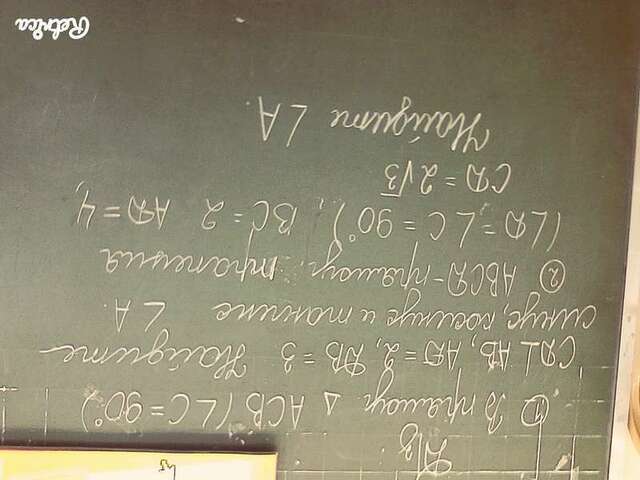 Д/з:
① В прямоуг. △ ACB (∠C = 90°)
CD⊥AB, AD = 2, DB = 3 Найдите
синус, косинус и тангенс ∠A.
② ABCD - прямоуг. трапеция
(∠D = ∠C = 90°), BC = 2 AD = 4,
CD = 2√3
Найдите ∠A.
Retrica